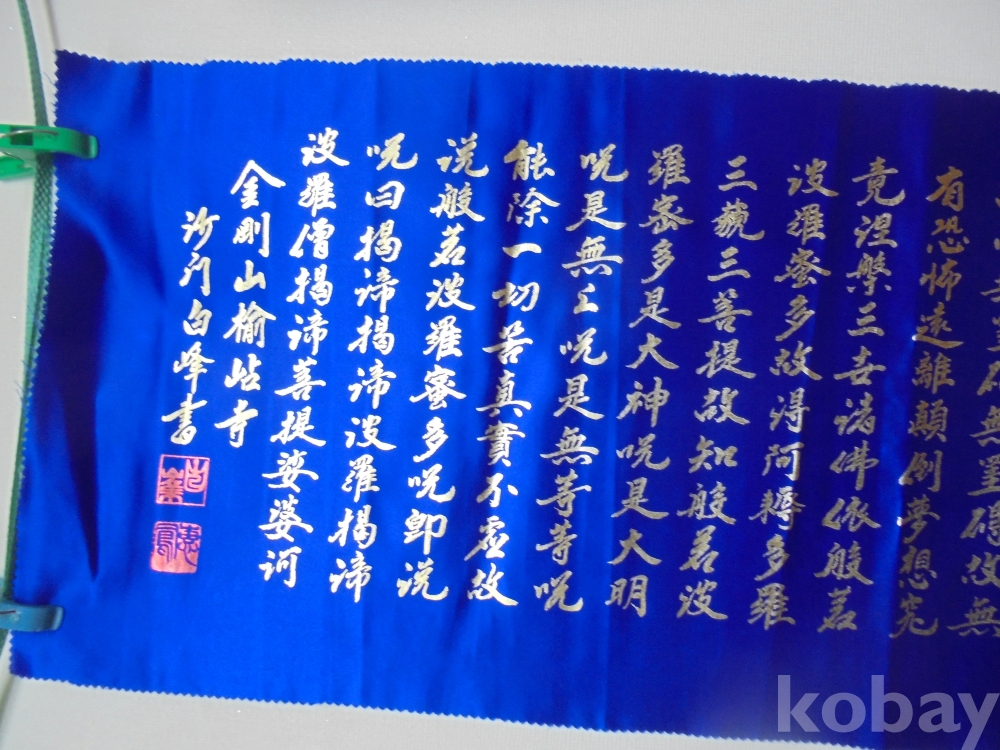 無罣碍無罣碍故無
有恐怖遠離顛倒夢想究
竟涅槃三世諸佛依般若
波羅蜜多故得阿耨多羅
三藐三菩提故知般若波
羅蜜多是大神呪是大明
呪是無上呪是無等等呪
能除一切苦真實不虛故
説般若波羅蜜多呪卽説
呪曰揭諦揭諦波羅揭諦
波羅僧揭諦菩提娑婆訶
金剛山楡岾寺
沙门白峰書
kobay